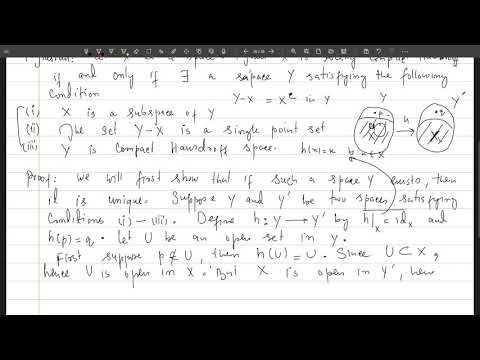 if and only if ∃ a space Y satisfying the following
condition Y-X = X^c in Y Y Y'
(i) X is a subspace of Y •p h •q
(ii) The set Y-X is a single point set X
(iii) Y is Compact Hausdorff space. h(x)=x ∈ X
Proof: We will first show that if such a space Y exists, then
it is unique. Suppose Y and Y' be two spaces satisfying
Conditions (i) - (iii). Define h: Y → Y' by h|_X = id_X and
h(p)=q. Let U be an open set in Y.
First suppose p ∉ U, then h(U)=U. Since U⊂X,
hence U is open in X. But X is open in Y', here